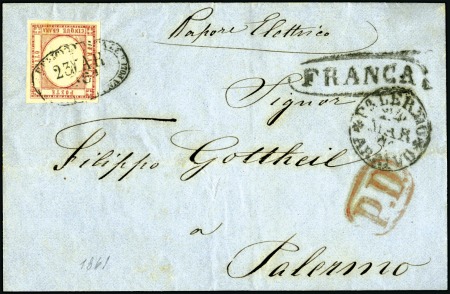 Vapore Elettrico
POSTA
CINQUE GRANA
23 MAR
FRANCA
Signor
PALERMO
MAR
ARRIVO
Filippo Gottheil
P.D.
a
1861
Palermo